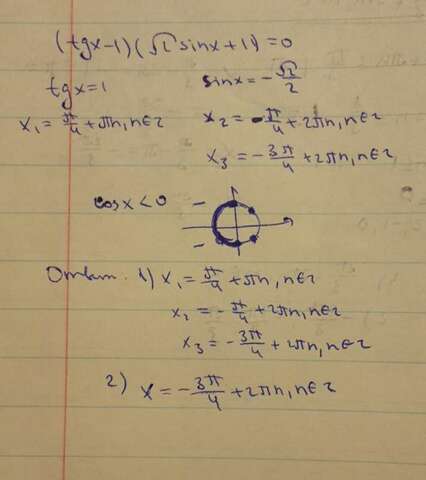 (tgx-1)(√2 sinx+1)=0
tgx=1 sinx=-√2/2
x₁=π/4+πn, n∈z x₂=-π/4+2πn, n∈z
x₃=-3π/4+2πn, n∈z
cosx<0
Ответ: 1) x₁=π/4+πn, n∈z
x₂=-π/4+2πn, n∈z
x₃=-3π/4+2πn, n∈z
2) x=-3π/4+2πn, n∈z